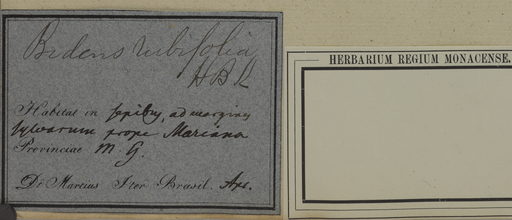 Bidens rubifolia
HBK
Habitat in sepibus, ad margines
sylvarum prope Mariana
Provinciae M. G.
Dr Martius Iter Brasil.
HERBARIUM REGIUM MONACENSE.